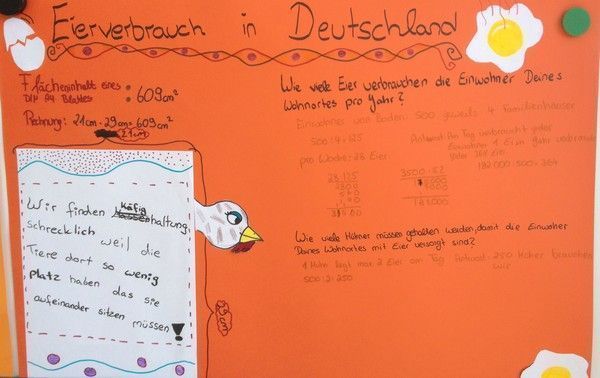 Eierverbrauch in Deutschland
Flächeninhalt eines
DIN A4 Blattes : 609cm²
Rechnung: 21cm·29cm=609cm²
21cm
Wir finden Käfig
haltung
schrecklich weil die
Tiere dort so wenig
platz haben das sie
aufeinander sitzen müssen!
29cm
Wie viele Eier verbrauchen die Einwohner Deines
Wohnortes pro Jahr?
Einwohner von Boden: 500 jeweils 4 Familienhäuser
500:4=125
pro Woche: 28 Eier
Antwort: Am Tag verbraucht jeder
Einwohner 1 Ei im Jahr verbraucht
jeder 364 Eier
182000:500=364
28·125
3500·52
182000
Wie viele Hühner müssen gehalten werden, damit die Einwoher
Deines Wohnortes mit Eier versorgt sind?
1 Huhn legt max 2 Eier am Tag Antwort: 250 Hüher brauchen
wir
500:2=250